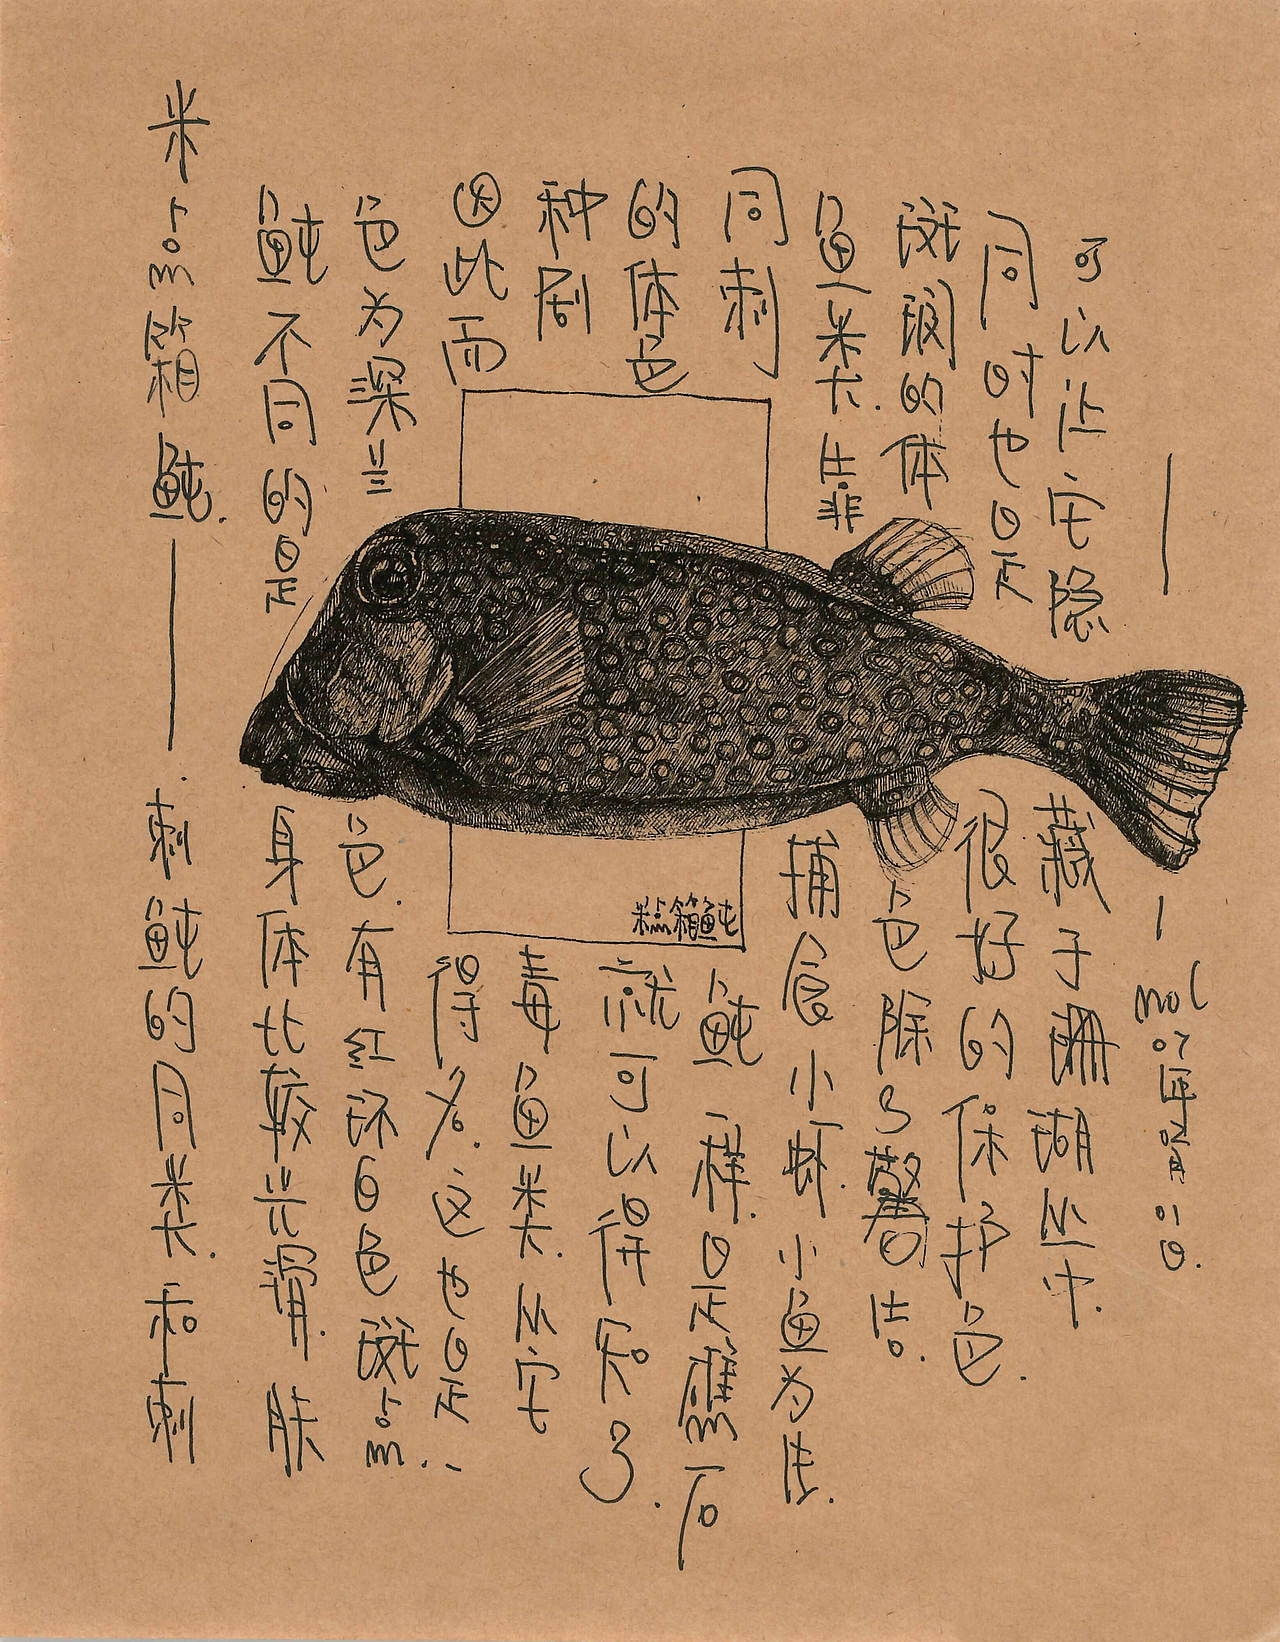 米点箱鲀.——刺鲀的同类.和刺
鲀不同的是身体比较光滑.肤
色为深兰色.有红环白色斑点.
因此而得名.这也是一
种剧毒鱼类.从它
的体色就可以得知了.
同刺鲀一样.是礁石
鱼类.靠捕食小虾.小鱼为生.
斑斓的体色除了警告.
同时也是很好的保护色.
可以让它隐藏于珊瑚丛中.
——mol 07年02月01日.
米点箱鲀